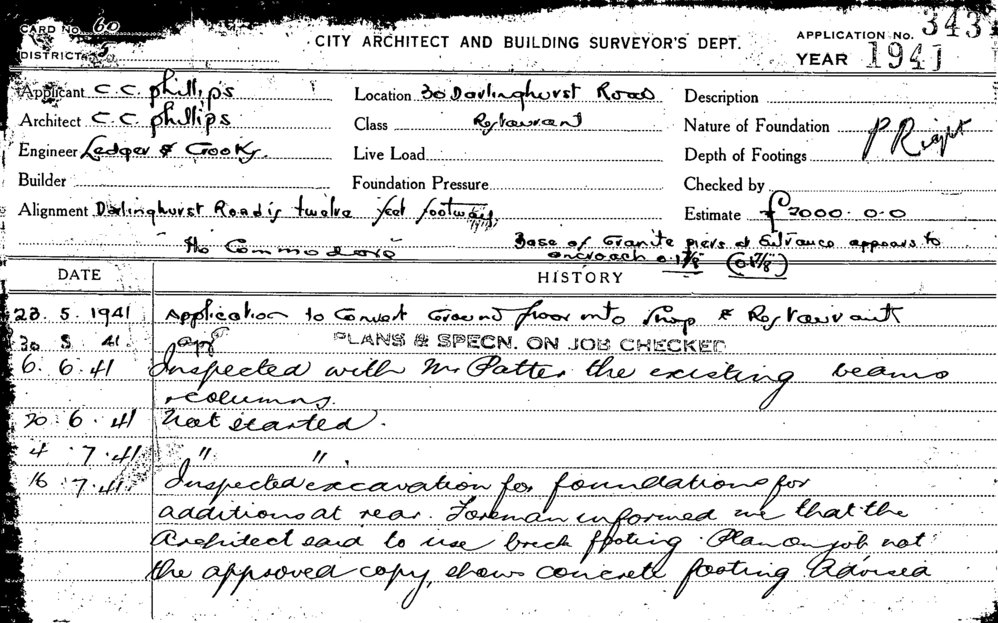 CARD NO. 60
DISTRICT 5
CITY ARCHITECT AND BUILDING SURVEYOR'S DEPT.
APPLICATION No. 343
YEAR 1941
Applicant C.C. Phillips
Location 30 Darlinghurst Road
Description
Architect C.C. Phillips
Class Restaurant
Nature of Foundation P Right
Engineer Ledger &
Live Load
Depth of Footings
Builder
Foundation Pressure
Checked by
Alignment Darlinghurst Road is twelve feet footway
Estimate £2000.0.0
The Commodore
Base of Granite piers at Entrance appears to
encroach 0.1⅞" (0.1⅞")
DATE
HISTORY
23.5.1941 Application to Convert Ground floor into Shop & Restaurant
30 5 41. app PLANS & SPECN. ON JOB CHECKED
6.6.41 Inspected with Mr Patter the existing beams
& columns.
20.6.41 Not started.
4.7.41 " ".
16.7.41 Inspected excavation for foundations for
additions at rear. Foreman informed me that the
Architect said to use brick footing. Plan on job not
the approved copy, shows concrete footing Advised